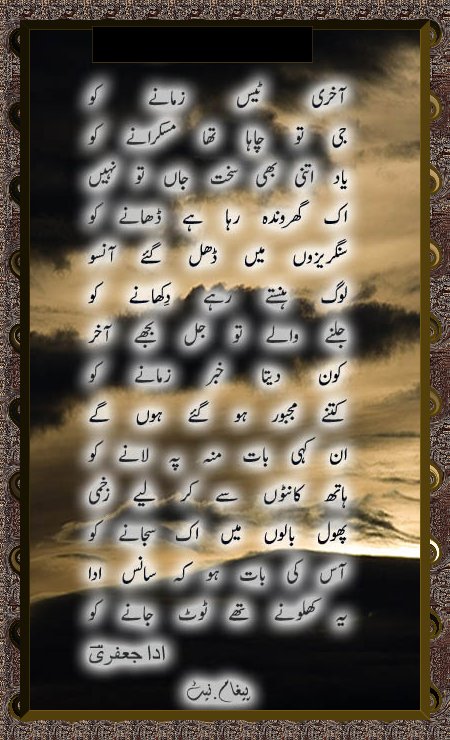 آخری ٹیس زمانے کو
جی تو چاہا تھا مسکرانے کو
یاد اتنی بھی سخت جاں تو نہیں
اک گھروندہ رہا ہے ڈھانے کو
سنگریزوں میں ڈھل گئے آنسو
لوگ ہنستے رہے دِکھانے کو
جلنے والے تو جل بجھے آخر
کون دیتا خبر زمانے کو
کتنے مجبور ہو گئے ہوں گے
ان کہی بات منہ پہ لانے کو
ہاتھ کانٹوں سے کر لیے زخمی
پھول بالوں میں اک سجانے کو
آس کی بات ہو کہ سانس ادا
یہ کھلونے تھے ٹوٹ جانے کو
ادا جعفری
پیغام.نیٹ